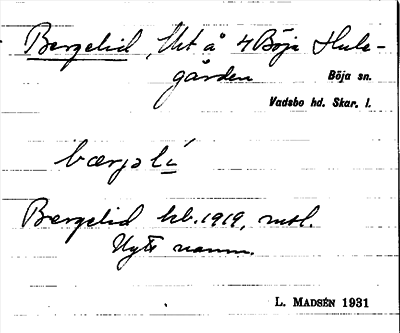 Bergelid, Ut å 4 Böja Hule-
gården Böja sn.
Vadsbo hd. Skar. l.
bærjəlí
Bergelid hb. 1919, mtl.
Nytt namn.
L. MADSÉN 1931